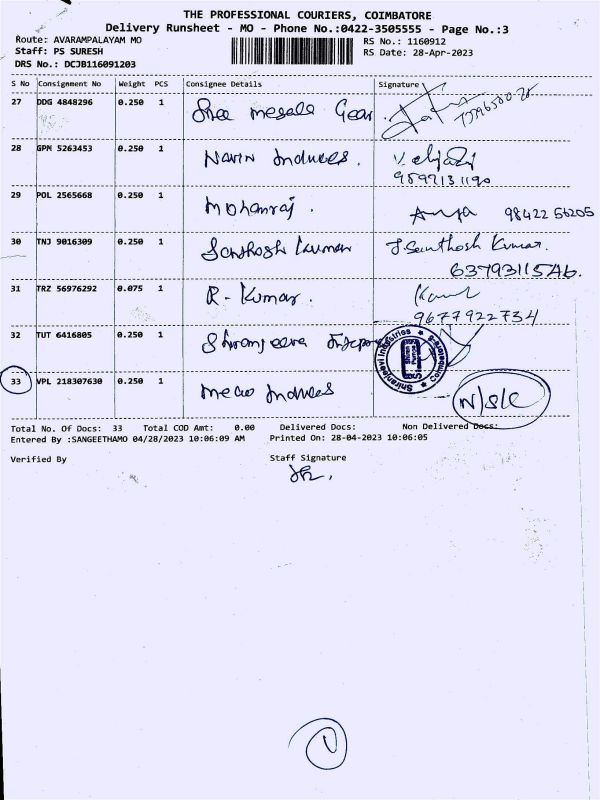 THE PROFESSIONAL COURIERS, COIMBATORE
Delivery Runsheet - MO - Phone No.:0422-3505555 - Page No.:3
Route: AVARAMPALAYAM MO RS No.: 1160912
Staff: PS SURESH RS Date: 28-Apr-2023
DRS No.: DCJB116091203
S No Consignment No Weight PCS Consignee Details Signature
27 DDG 4848296 0.250 1 Gear
28 GPM 5263453 0.250 1 Navin
9597131190
29 POL 2565668 0.250 1 Mohanraj . 98422 56205
30 TNJ 9016309 0.250 1 Santhosh Kumar J. Santhosh Kumar.
31 TRZ 56976292 0.075 1 R- Kumar .
9677922734
32 TUT 6416805 0.250 1
Shiranjeevi Industries * Coimbatore-6 *
33 VPL 218307630 0.250 1 N/S/C
Total No. Of Docs: 33 Total COD Amt: 0.00 Delivered Docs: Non Delivered Docs:
Entered By :SANGEETHAMO 04/28/2023 10:06:09 AM Printed On: 28-04-2023 10:06:05
Verified By Staff Signature